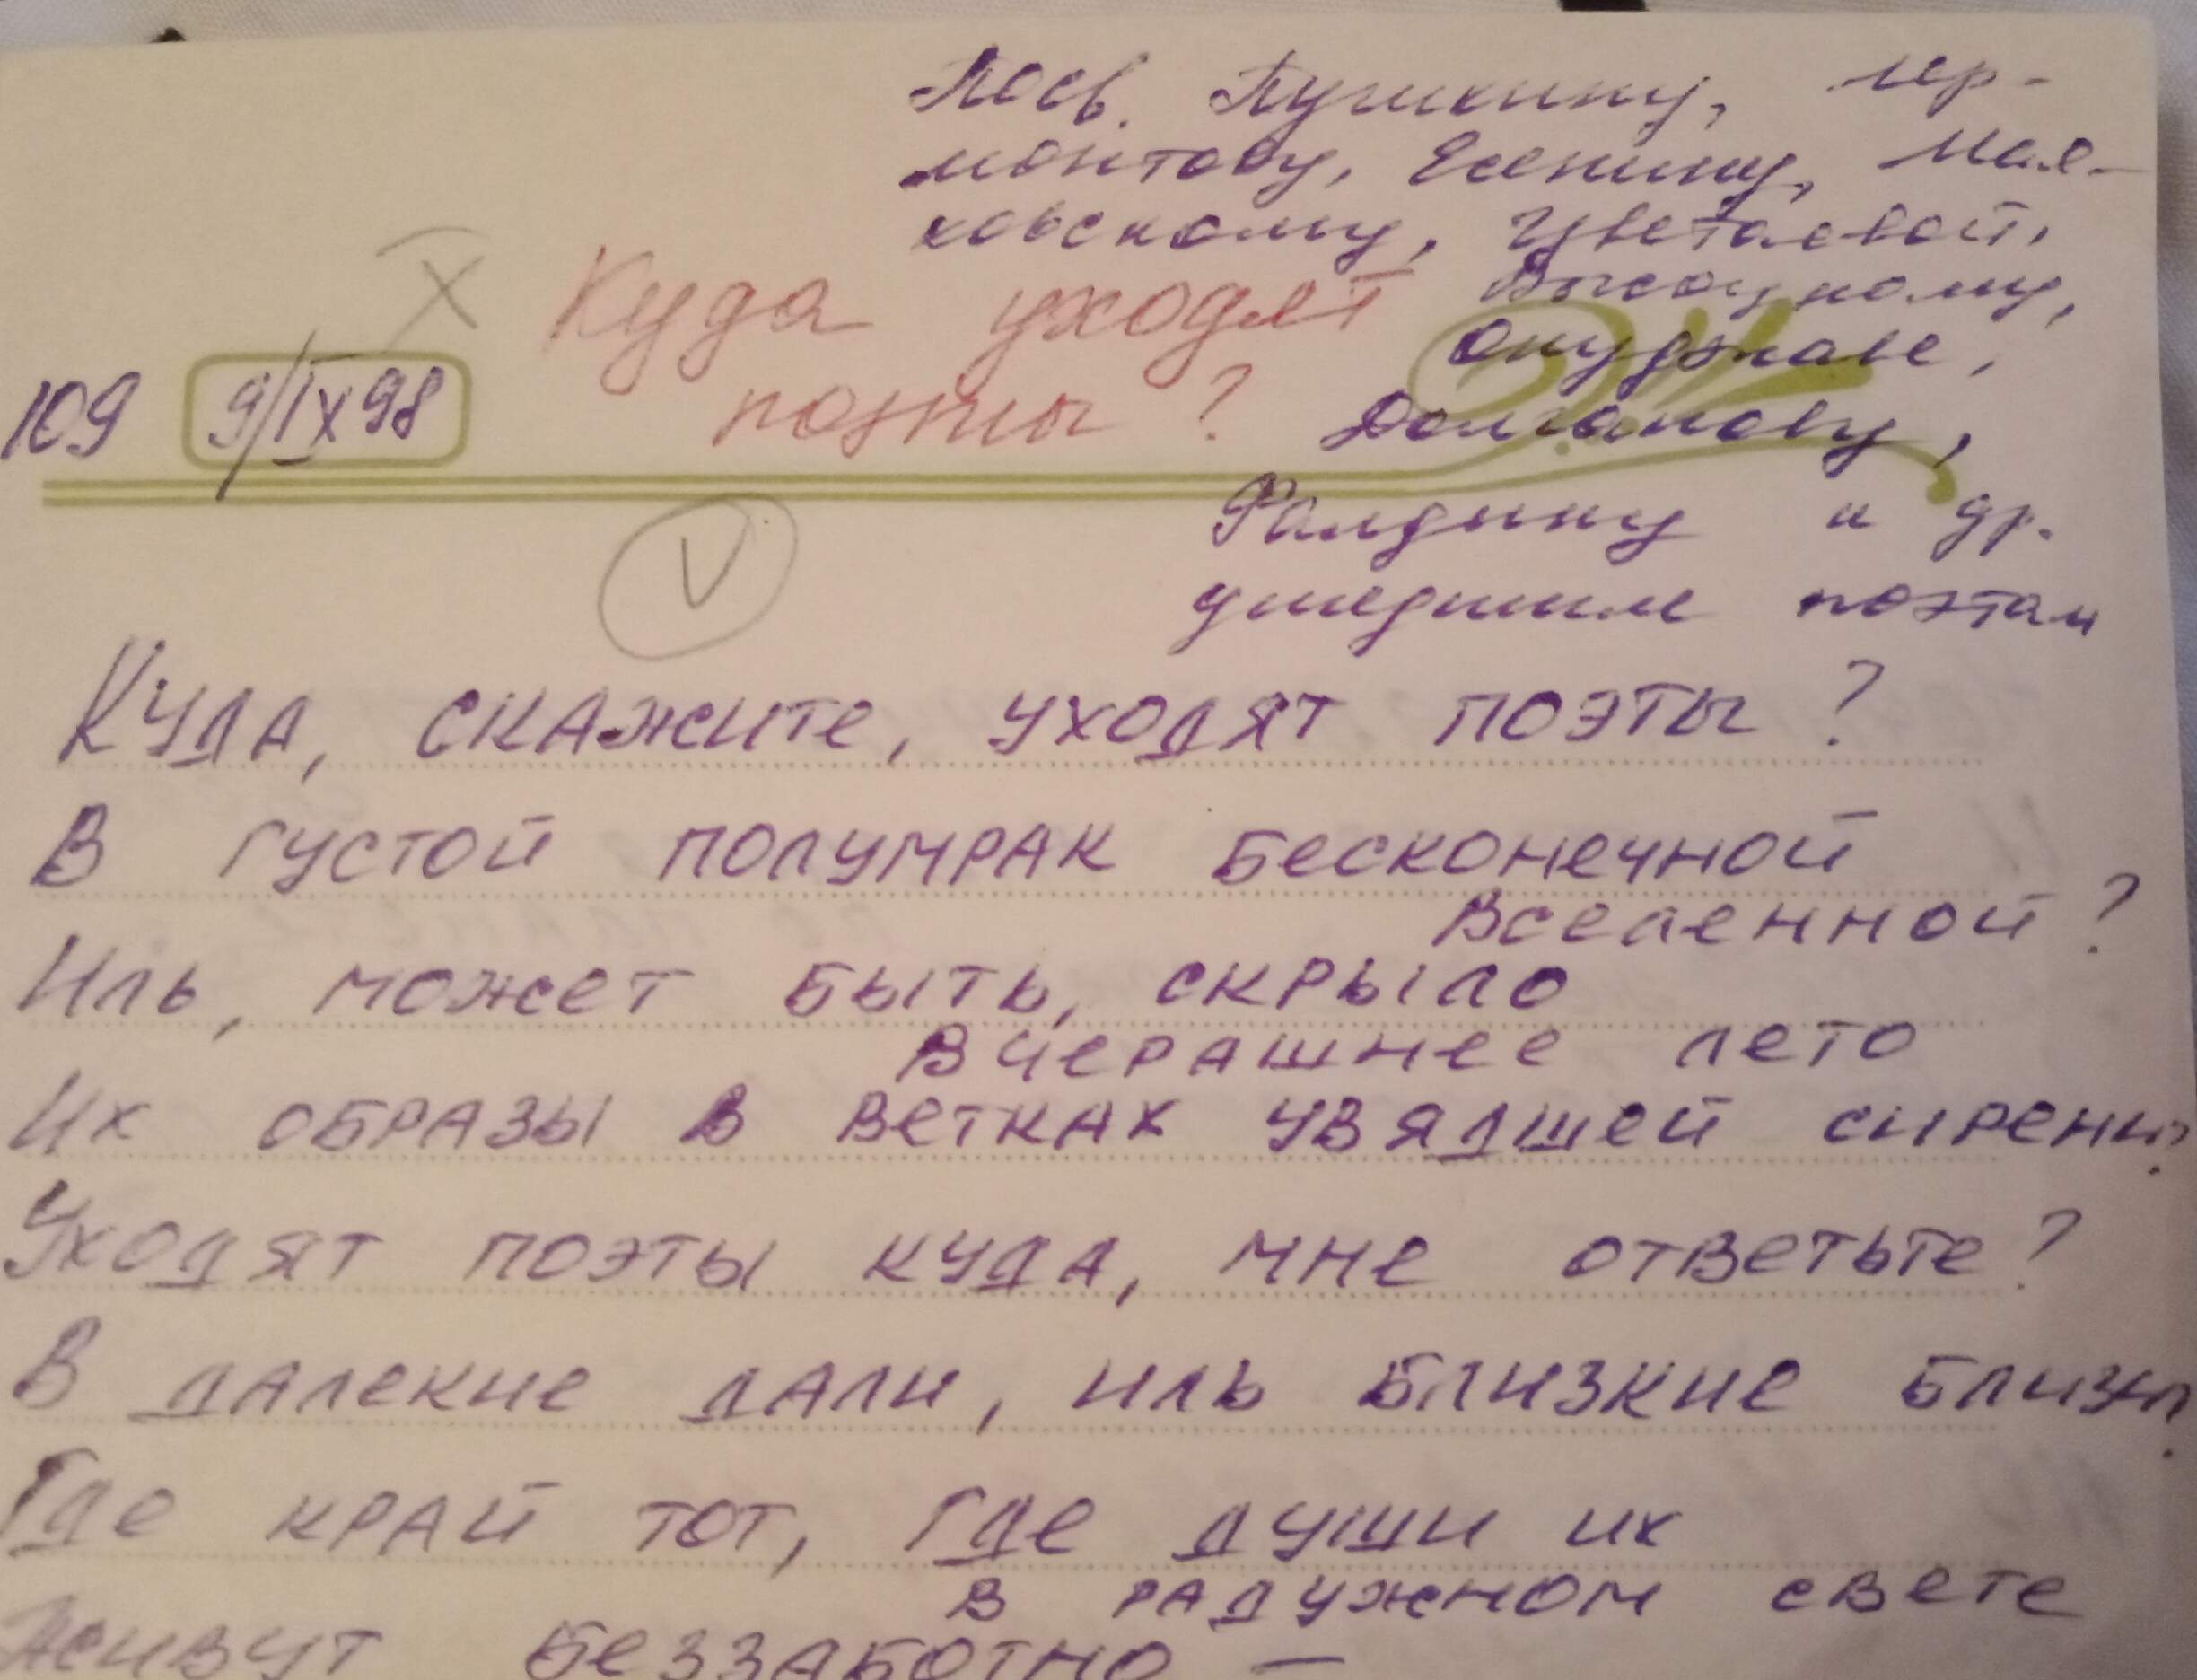 Посв. Пушкину, Лер-
монтову, Есенину, Мая-
ковскому, Цветаевой,
Высоцкому,
Окуджаве,
Долганову,
Фалдину и др.
ушедшим поэтам
X Куда уходят
поэты?
109 9/IX 98
V
Куда, скажите, уходят поэты?
В густой полумрак бесконечной
Вселенной?
Иль, может быть, скрыло
Вчерашнее лето
Их образы в ветках увядшей сирени?
Уходят поэты куда, мне ответьте?
В далекие дали, иль близкие близи?
Где край тот, где души их
в радужном свете
Живут беззаботно –